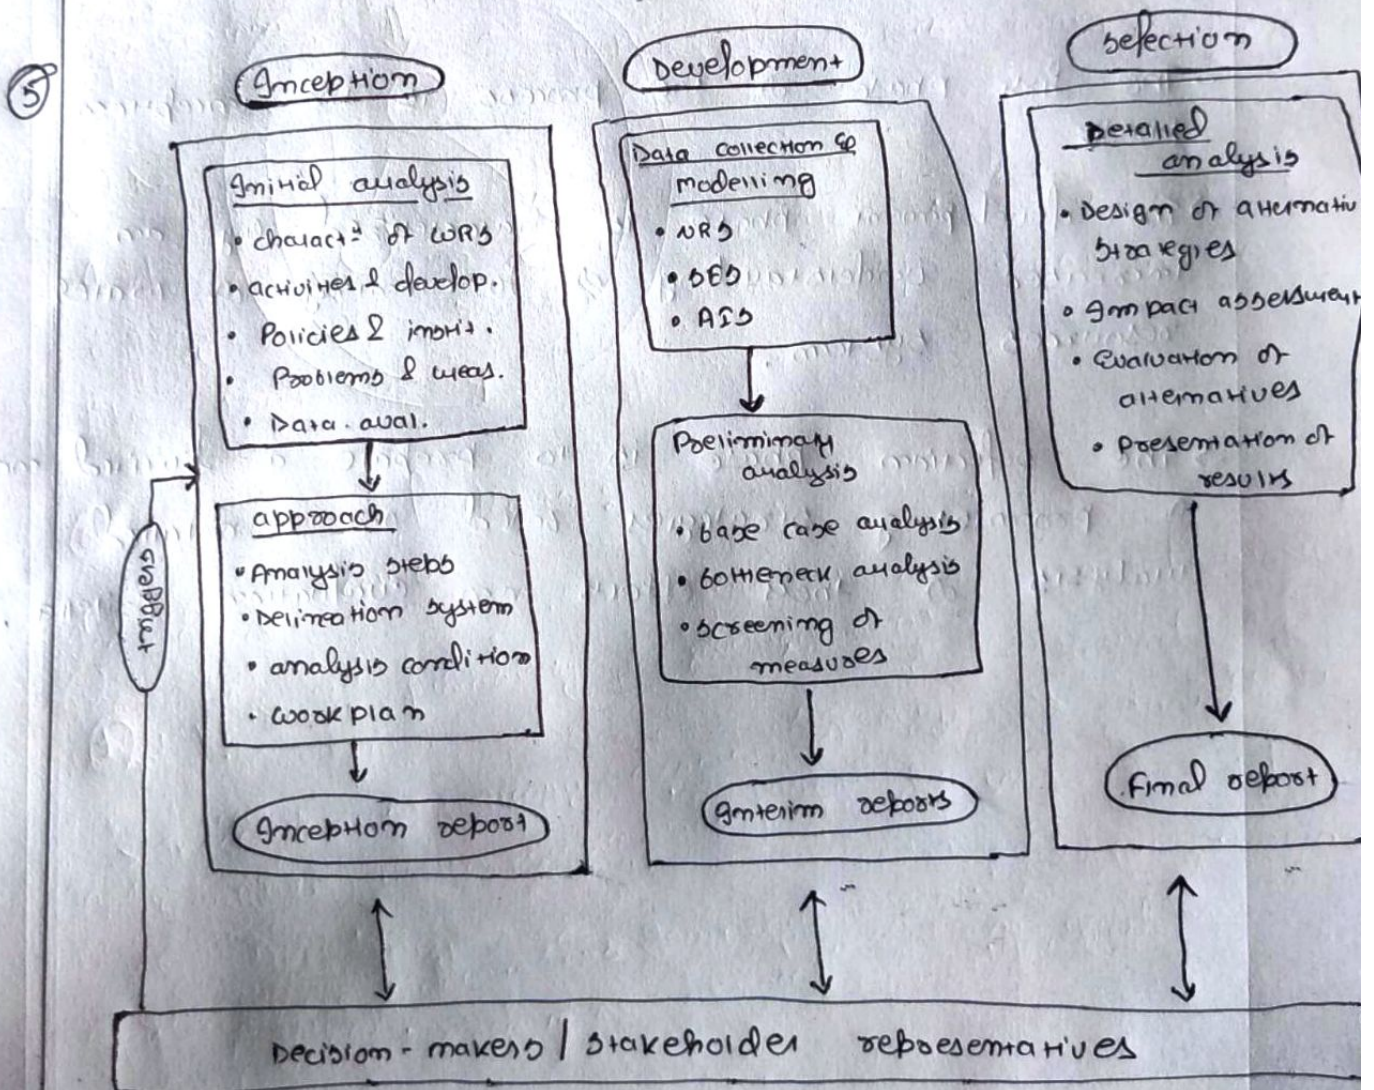 5
Inception
Initial analysis
• charactᶻ of WRS
• activites & develop.
• Policies & instit.
• Problems & meas.
• Data. aval.
approach
• Analysis steps
• Delineation system
• analysis condition
• work plan
Inception report
Development
Data collection &
modelling
• NRS
• SES
• AIS
Preliminary
analysis
• base case analysis
• bottleneck analysis
• screening of
measures
Interim reports
Selection
Detailed
analysis
• Design of alternativ
Strategies
• Impact assessment
• Evaluation of
alternatives
• Presentation of
results
Final report
Decision-makers / stakeholder representatives